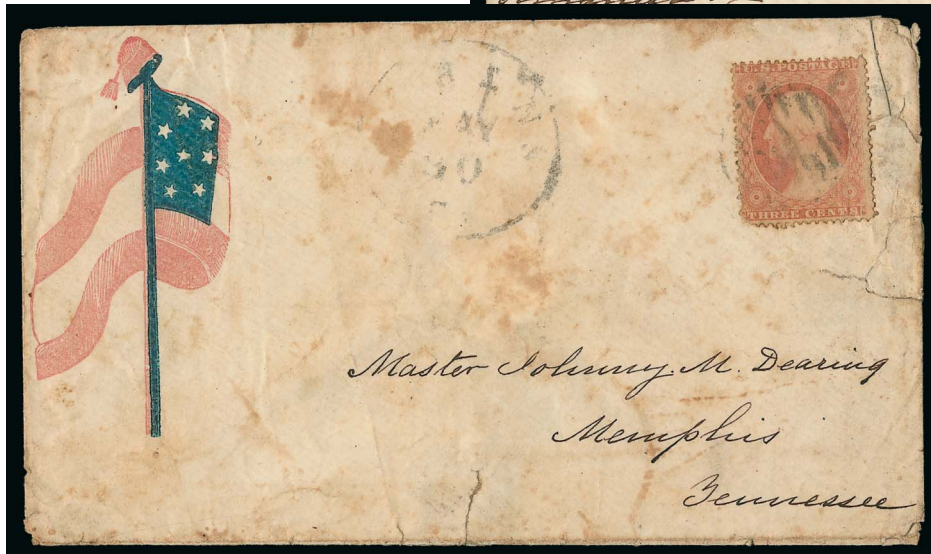 U.S. POSTAGE
THREE CENTS
Master Johnny. M. Dearing
Memphis
Tennessee